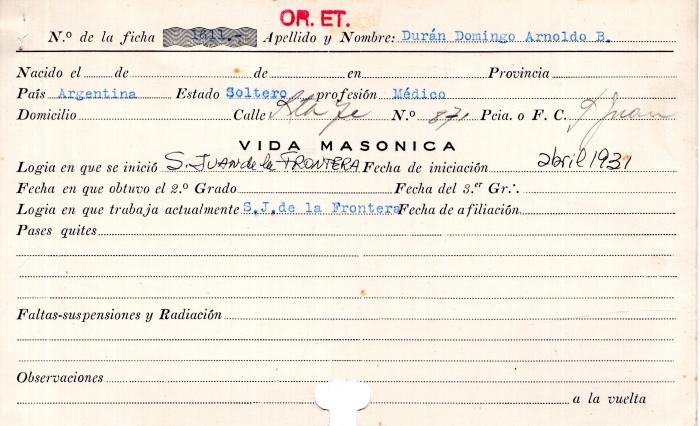 OR. ET.
N.º de la ficha 1611.- Apellido y Nombre: Durán Domingo Arnoldo B.
Nacido el de de en Provincia
País Argentina Estado Soltero profesión Médico
Domicilio Calle Sta Fe N.º 871 Pcia. o F. C. S Juan
VIDA MASONICA
Logia en que se inició S. JUAN de la FRONTERA Fecha de iniciación abril 1931
Fecha en que obtuvo el 2.º Grado Fecha del 3.er Gr∴
Logia en que trabaja actualmente S.J. de la Frontera Fecha de afiliación
Pases quites
Faltas-suspensiones y Radiación
Observaciones
a la vuelta